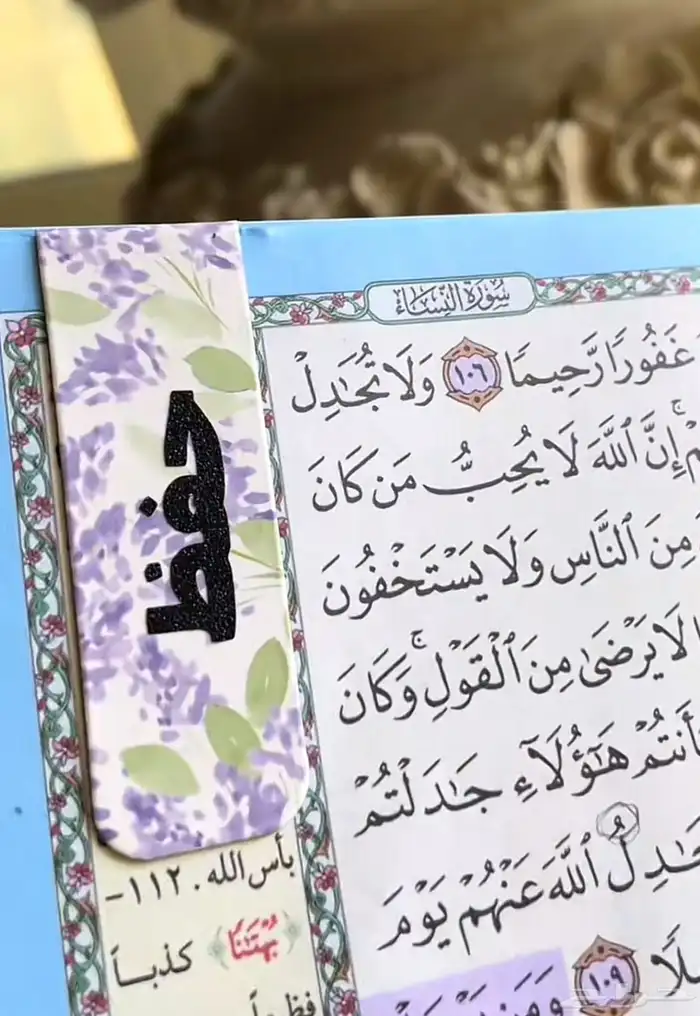 سُورَةُ النِّسَاءِ
غَفُورًا رَّحِيمًا ١٠٦ وَلَا تُجَٰدِلْ
إِنَّ ٱللَّهَ لَا يُحِبُّ مَن كَانَ
مِنَ ٱلنَّاسِ وَلَا يَسْتَخْفُونَ
لَا يَرْضَىٰ مِنَ ٱلْقَوْلِ ۚ وَكَانَ
هَٰٓؤُلَآءِ جَٰدَلْتُمْ
ٱللَّهَ عَنْهُمْ يَوْمَ
١٠٩
حفظ
بأس الله. ١١٢-
﴿بُهْتَٰنًا﴾ كذباً